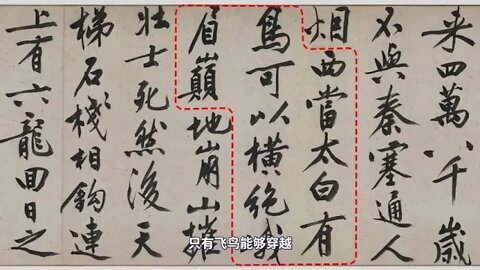 來四萬八千歲
不與秦塞通人
烟西當太白有
鳥可以橫絶峨
眉巔地崩山摧
壯士死然後天
梯石棧相鈎連
上有六龍回日之
只有飞鸟能够穿越